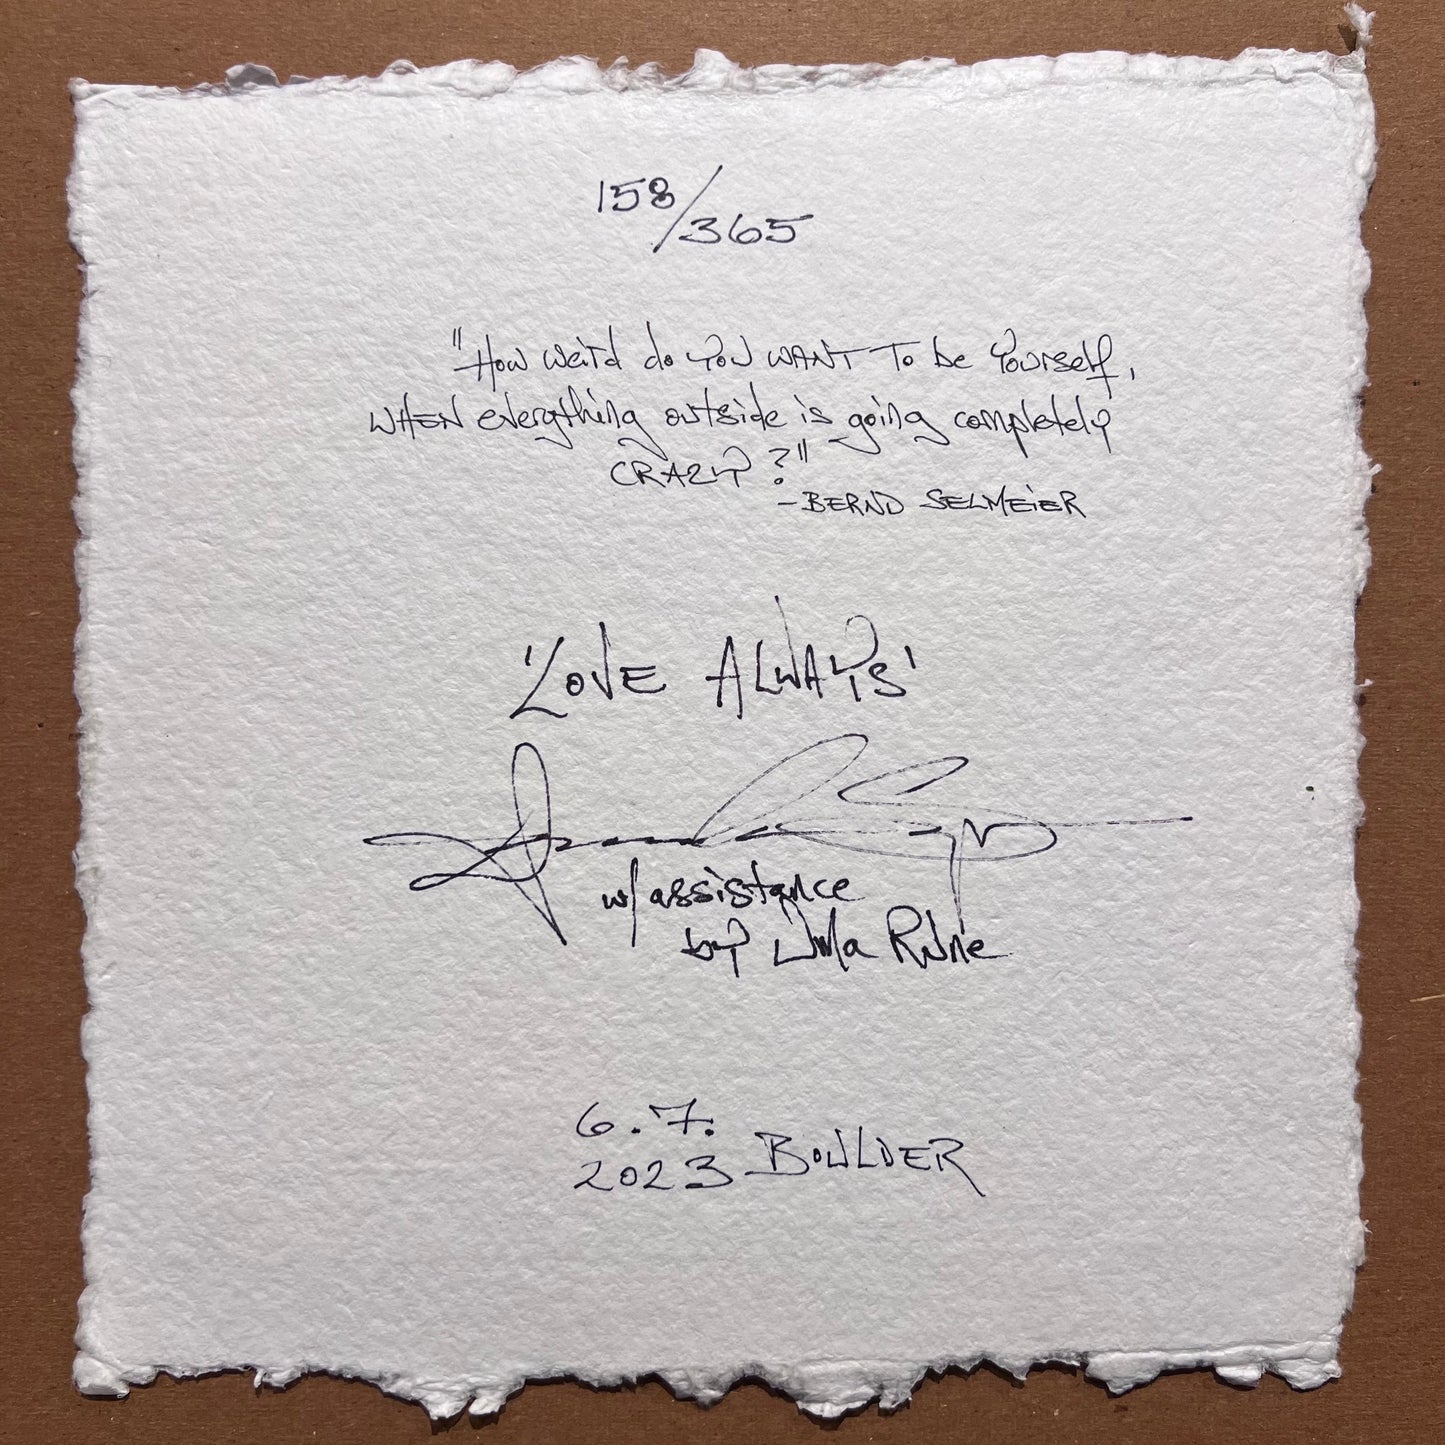 158/365
"How weird do you WANT To be Yourself,
WHEN everything outside is going completely
CRAZY?"
-BERND SELMEIER
'LOVE ALWAYS'
w/ assistance
by Uma Rune
6.7.
2023 BOULDER